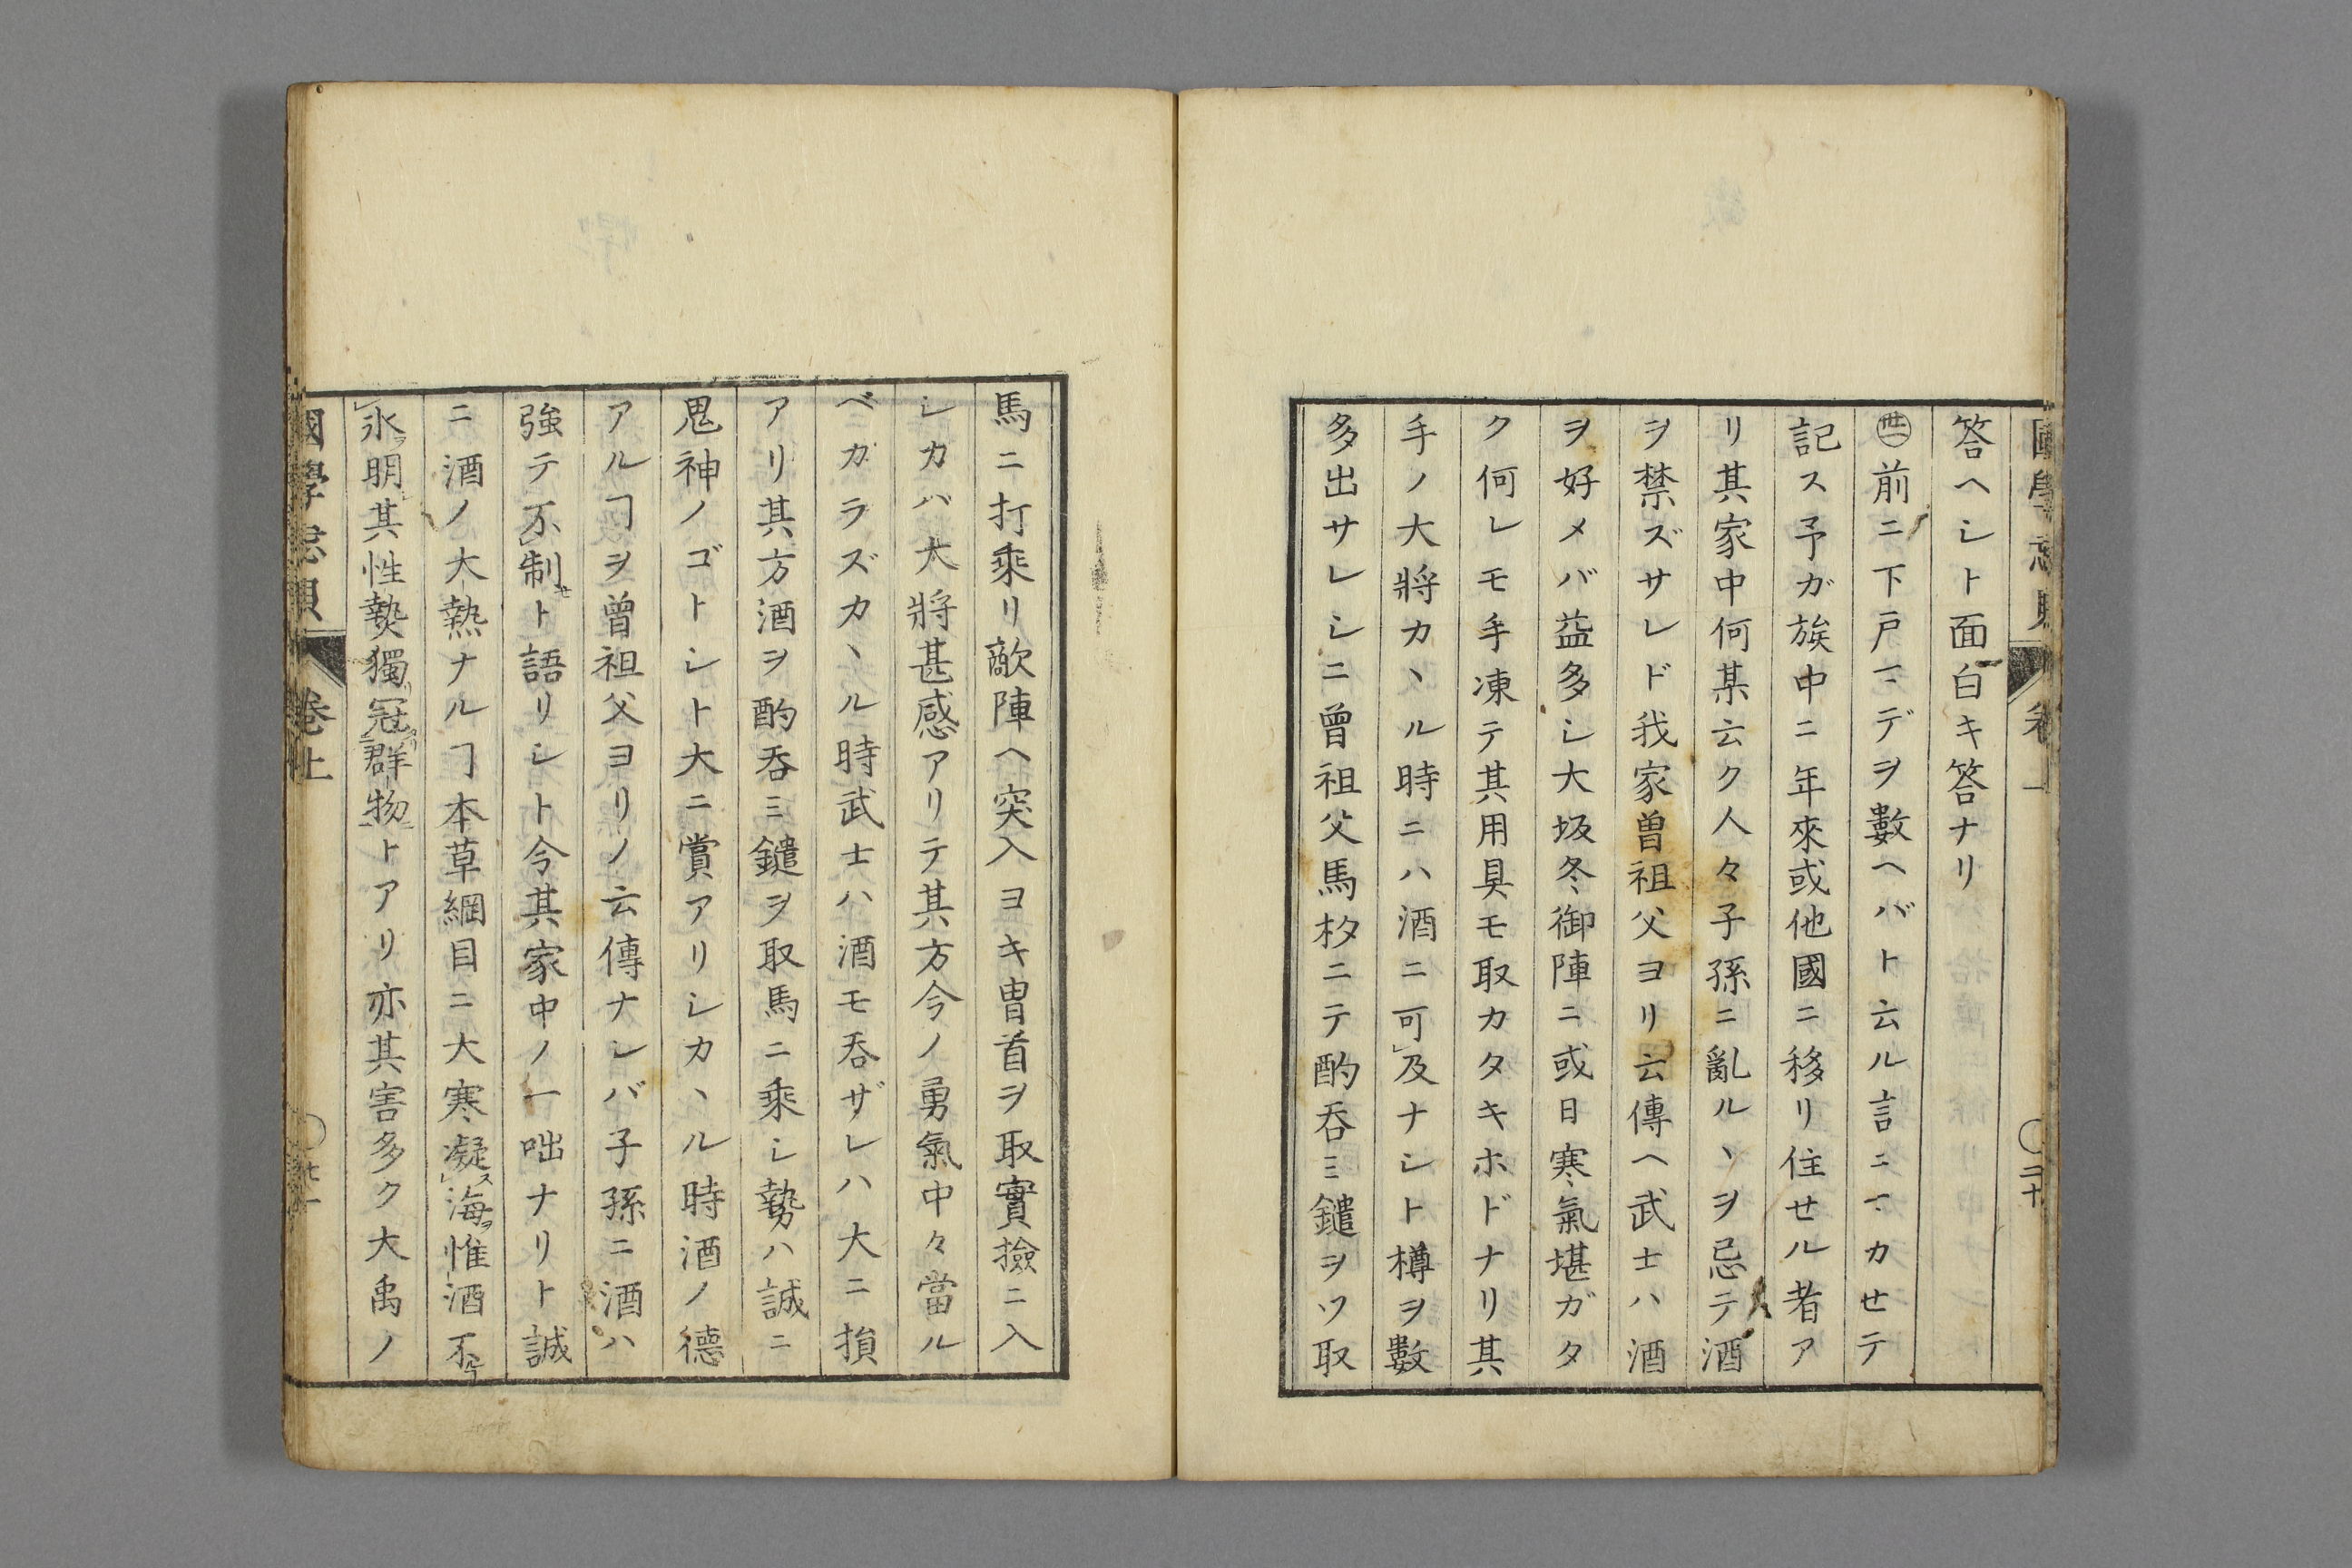 答ヘシト面白キ答ナリ
㊁前ニ下戸マデヲ數ヘバト云ル言ニマカセテ
記ス予ガ族中ニ年來或他國ニ移リ住セル者ア
リ其家中何某云ク人々子孫ニ亂ルヽヲ忌テ酒
ヲ禁ズサレド我家曽祖父ヨリ云傳ヘ武士ハ酒
ヲ好メバ益多シ大坂冬御陣ニ或日寒氣堪ガタ
ク何レモ手凍テ其用具モ取カタキホドナリ其
手ノ大將カヽル時ニハ酒ニ可及ナシト樽ヲ數
多出サレシニ曽祖父馬杦ニテ酌呑ミ鑓ヲツ取
馬ニ打乘リ敵陣ヘ突入ヨキ冑首ヲ取實撿ニ入
レカバ大將甚感アリテ其方今ノ勇氣中々當ル
ベカラズカヽル時武士ハ酒モ呑ザレハ大ニ損
アリ其方酒ヲ酌呑ミ鑓ヲ取馬ニ乘シ勢ハ誠ニ
鬼神ノゴトシト大ニ賞アリシカヽル時酒ノ德
アルヿヲ曽祖父ヨリノ云傳ナレバ子孫ニ酒ハ
強テ不制セト語リシト今其家中ノ一咄ナリト誠
ニ酒ノ大熱ナルヿ本草綱目ニ大寒凝ス海ヲ惟酒不
氷ラ明其性熱獨リ冠タリ群物ニトアリ亦其害多ク大禹ノ
國學忘貝 卷上